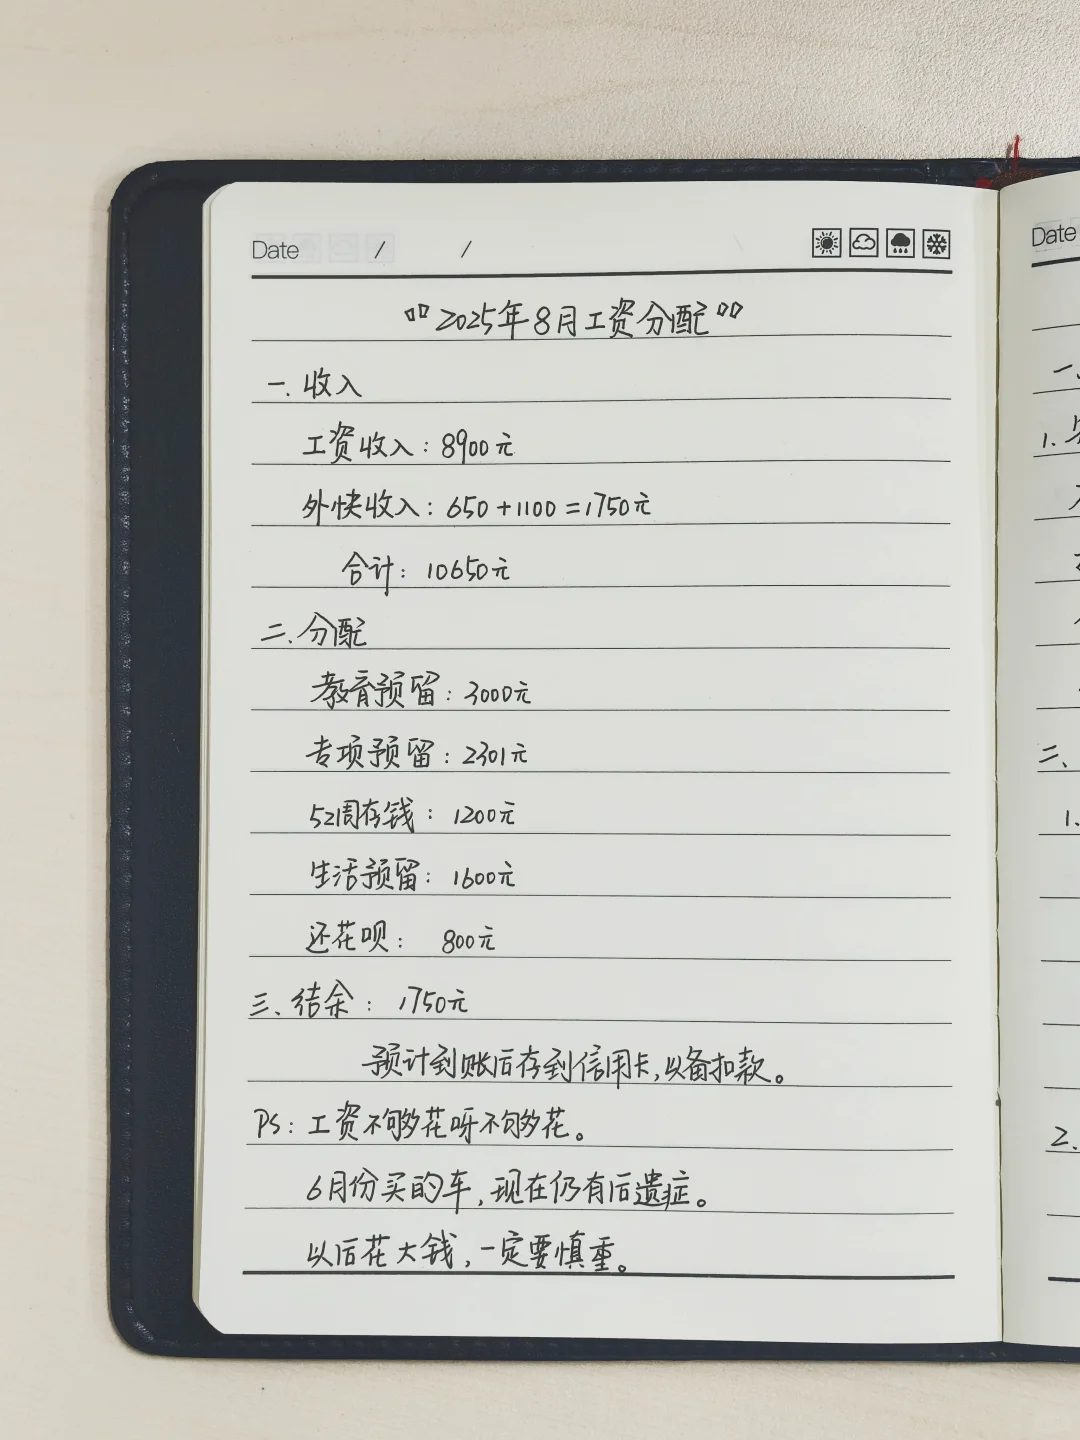 Date / /
"2025年8月工资分配"
一. 收入
工资收入: 8900元
外快收入: 650+1100=1750元
合计: 10650元
二、分配
教育预留: 3000元
专项预留: 2301元
52周存钱: 1200元
生活预留: 1600元
还花呗: 800元
三、结余: 1750元
预计到账后存到信用卡,以备扣款。
Ps: 工资不够花呀不够花。
6月份买的车,现在仍有后遗症。
以后花大钱,一定要慎重。
Date
一、
1.
二、
1.
2.